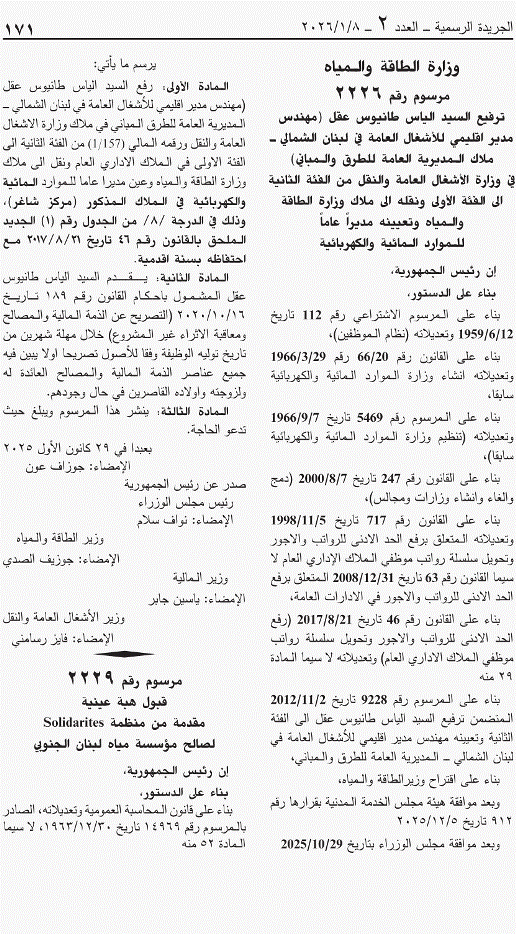 الجريدة الرسمية ــ العدد ٢ ــ ٢٠٢٦/١/٨
١٧١
وزارة الطاقة والـمياه
مرسوم رقم ٢٢٢٦
ترفيع السيد الياس طانيوس عقل (مهندس
مدير اقليمي للأشغال العامة في لبنان الشمالي ــ
ملاك الـمديرية العامة للطرق والـمباني)
في وزارة الأشغال العامة والنقل من الفئة الثانية
الى الفئة الأولى ونقله الى ملاك وزارة الطاقة
والـمياه وتعيينه مديراً عاماً
للـموارد الـمائية والكهربائية
إن رئيس الجمهورية،
بناء على الدستور،
بناء على المرسوم الاشتراعي رقم 112 تاريخ
1959/6/12 وتعديلاته (نظام الـموظفين)،
بناء على القانون رقم 66/20 تاريخ 1966/3/29
وتعديلاته انشاء وزارة الـموارد الـمائية والكهربائية
سابقا،
بناء على الـمرسوم رقم 5469 تاريخ 1966/9/7
وتعديلاته (تنظيم وزارة الـموارد الـمائية والكهربائية
سابقا)،
بناء على القانون رقم 247 تاريخ 2000/8/7 (دمج
والغاء وانشاء وزارات ومجالس)،
بناء على القانون رقم 717 تاريخ 1998/11/5
وتعديلاته الـمتعلق برفع الحد الادنى للرواتب والاجور
وتحويل سلسلة رواتب موظفي الـملاك الإداري العام لا
سيما القانون رقم 63 تاريخ 2008/12/31 الـمتعلق برفع
الحد الادنى للرواتب والاجور في الادارات العامة،
بناء على القانون رقم 46 تاريخ 2017/8/21 (رفع
الحد الادنى للرواتب والاجور وتحويل سلسلة رواتب
موظفي الـملاك الاداري العام) وتعديلاته لا سيما الـمادة
٢٩ منه
بناء على الـمرسوم رقم 9228 تاريخ 2012/11/2
الـمتضمن ترفيع السيد الياس طانيوس عقل الى الفئة
الثانية وتعيينه مهندس مدير اقليمي للأشغال العامة في
لبنان الشمالي ــ الـمديرية العامة للطرق والـمباني،
بناء على اقتراح وزيرالطاقة والـمياه،
وبعد موافقة هيئة مجلس الخدمة الـمدنية بقرارها رقم
٩١٢ تاريخ ٢٠٢٥/١٢/٥
وبعد موافقة مجلس الوزراء بتاريخ 2025/10/29
يرسم ما يأتي:
الـمادة الأولى: رفع السيد الياس طانيوس عقل
(مهندس مدير اقليمي للأشغال العامة في لبنان الشمالي ــ
الـمديرية العامة للطرق والمباني في ملاك وزارة الاشغال
العامة والنقل ورقمه الـمالي (1/157) من الفئة الثانية الى
الفئة الاولى في الـملاك الاداري العام ونقل الى ملاك
وزارة الطاقة والـمياه وعين مديرا عاما للـموارد الـمائية
والكهربائية في الـملاك الـمذكور (مركز شاغر)،
وذلك في الدرجة /٨/ من الجدول رقم (1) الجديد
الـملحق بالقانون رقـم ٤٦ تاريخ ٢٠١٧/٨/٢١ مـع
احتفاظه بسنة اقدمية.
الـمادة الثانية: يـتـقـدم السيد الياس طانيوس
عقل الـمشمـول باحكام القانون رقـم ١٨٩ تـاريـخ
٢٠٢٠/١٠/١٦ (التصريح عن الذمة الـمالية والـمصالح
ومعاقبة الاثراء غير الـمشروع) خلال مهلة شهرين من
تاريخ توليه الوظيفة وفقا للأصول تصريحا اولا يبين فيه
جميع عناصر الذمة الـمالية والـمصالح العائدة له
ولزوجته واولاده القاصرين في حال وجودهم.
الـمادة الثالثة: ينشر هذا الـمرسوم ويبلغ حيث
تدعو الحاجة.
بعبدا في ٢٩ كانون الأول ٢٠٢٥
الإمضاء: جوزاف عون
صدر عن رئيس الجمهورية
رئيس مجلس الوزراء
الإمضاء: نواف سلام
وزير الطاقة والـمياه
الإمضاء: جوزيف الصدي
وزير الـمالية
الإمضاء: ياسين جابر
وزير الأشغال العامة والنقل
الإمضاء: فايز رسامني
مرسوم رقم ٢٢٢٩
قبول هبة عينية
مقدمة من منظمة Solidarites
لصالح مؤسسة مياه لبنان الجنوبي
إن رئيس الجمهورية،
بناء على الدستور،
بناء على قانون الـمحاسبة العمومية وتعديلاته، الصادر
بالـمرسوم رقم ١٤٩٦٩ تاريخ ١٩٦٣/١٢/٣٠، لا سيما
الـمادة ٥٢ منه